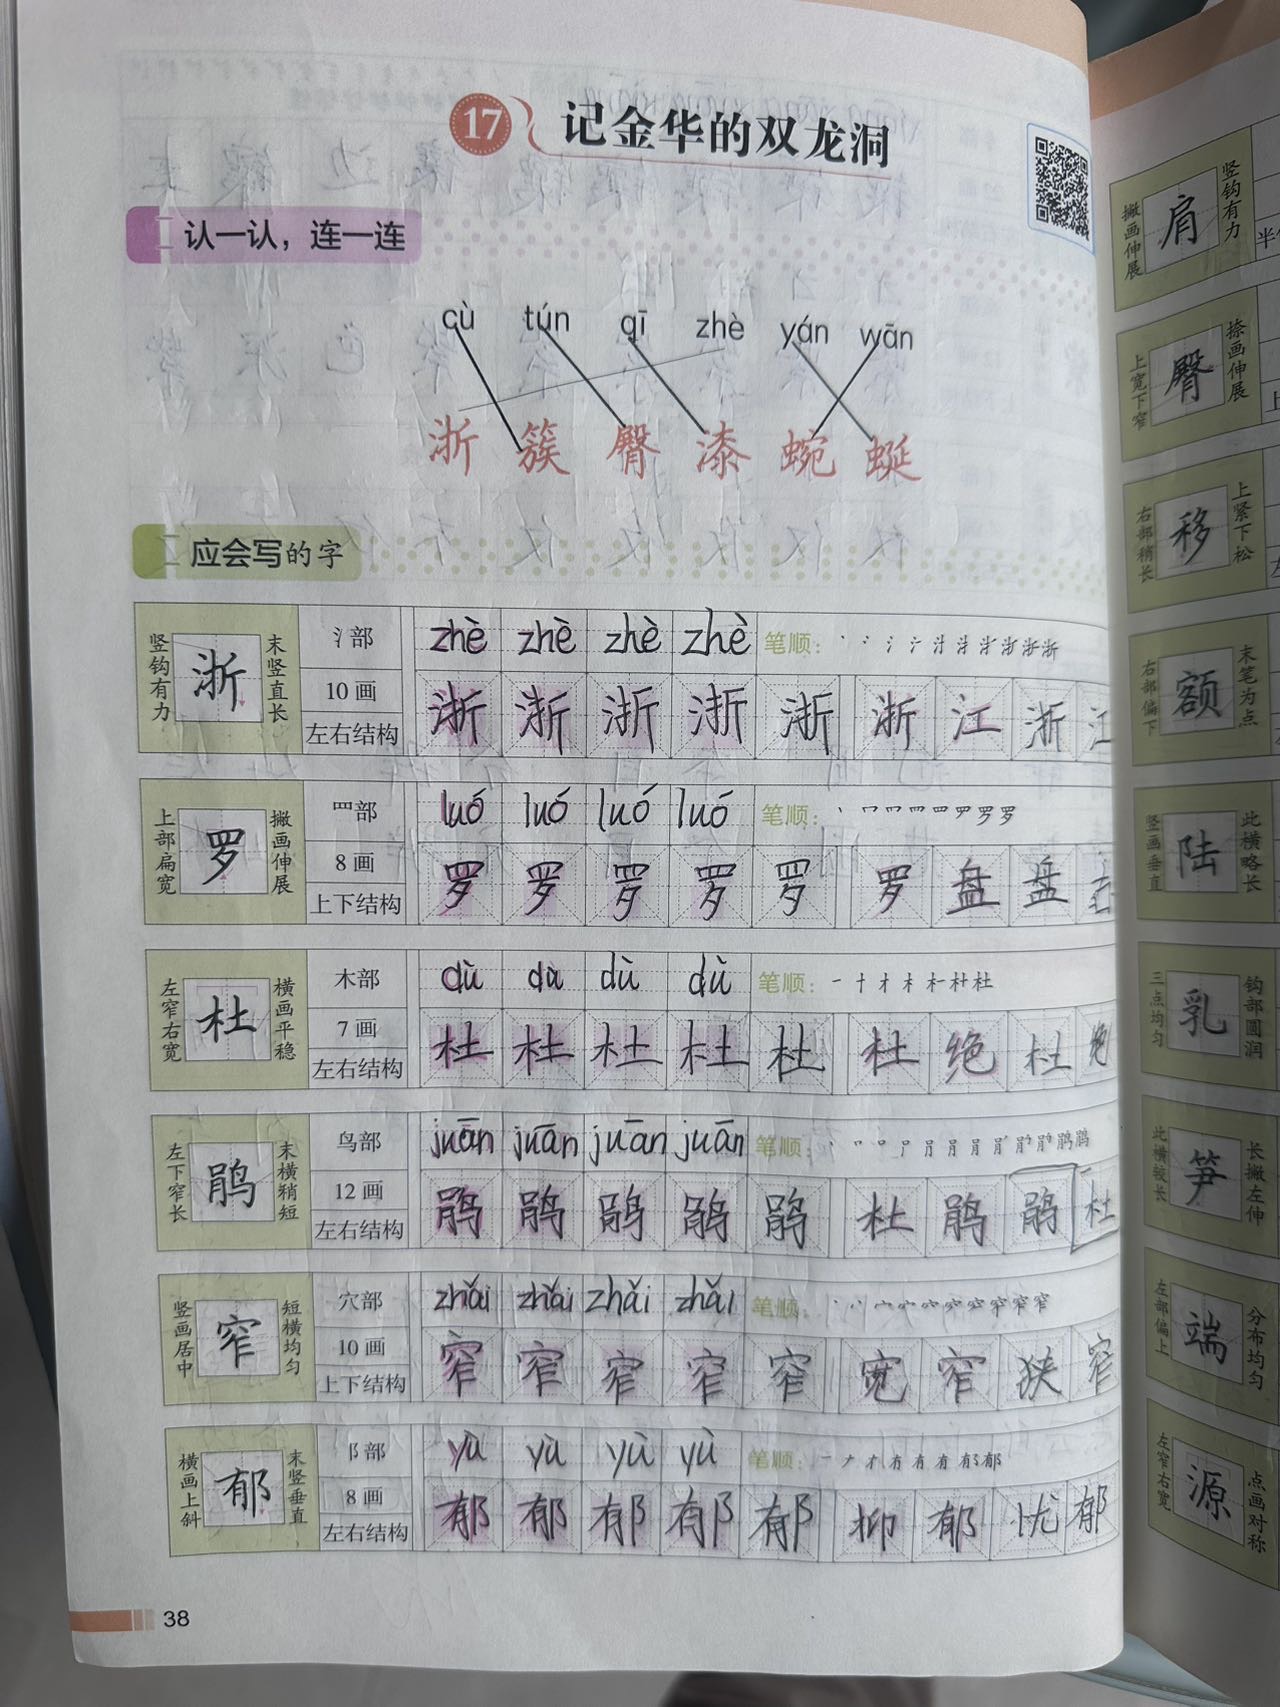 17 记金华的双龙洞
认一认，连一连
cù tún qī zhè yán wān
浙 簇 臀 漆 蜿 蜒
应会写的字
竖钩有力 浙 末竖直长
氵部
10 画
左右结构
zhè zhè zhè zhè
笔顺：
浙 浙 浙 浙 浙 浙 江 浙 江
上部扁宽 罗 撇画伸展
罒部
8 画
上下结构
luó luó luó luó
笔顺：
罗 罗 罗 罗 罗 罗 盘 盘
左窄右宽 杜 横画平稳
木部
7 画
左右结构
dù dù dù dù
笔顺：一 十 才 木 杜
杜 杜 杜 杜 杜 杜 绝 杜 绝
左下窄长 鹃 末横稍短
鸟部
12 画
左右结构
juān juān juān juān
笔顺：
鹃 鹃 鹃 鹃 鹃 杜 鹃 鹃 杜
竖画居中 窄 短横均匀
穴部
10 画
上下结构
zhǎi zhǎi zhǎi zhǎi
笔顺：
窄 窄 窄 窄 窄 宽 窄 狭 窄
横画上斜 郁 末竖垂直
阝部
8 画
左右结构
yù yù yù yù
笔顺：
郁 郁 郁 郁 郁 抑 郁 忧 郁
38
撇画伸展 肩 竖钩有力
上宽下窄 臀 捺画伸展
右部稍长 移 上紧下松
右部偏下 额 末笔为点
竖画垂直 陆 此横略长
三点均匀 乳 钩部圆润
此横较长 笋 长撇左伸
左部偏上 端 分布均匀
左窄右宽 源 点画对称